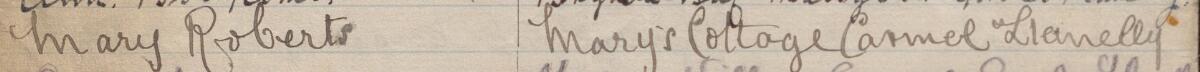 Mary Roberts Mary's Cottage Carmel Llanelly